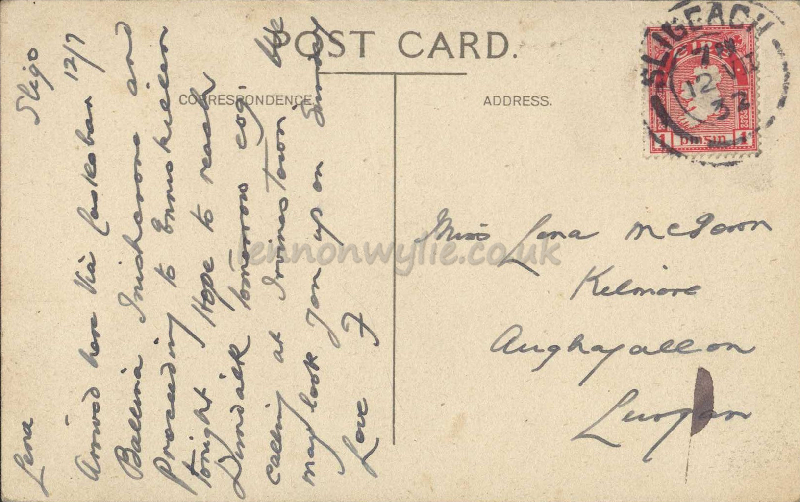 POST CARD.
CORRESPONDENCE
ADDRESS.
SLIGEACH
12
32
1 pinsin 1
Sligo
12/7
Lena
Arrived here via Castlebar
Ballina Iniscrone and
Proceeding to Enniskillen
tonight Hope to reach
Dundalk tomorrow evg.
calling at Irvinestown We
may look you up on Sunday
Love F
Miss Lena McGown
Kilmore
Aughagallon
Lurgan
lennonwylie.co.uk